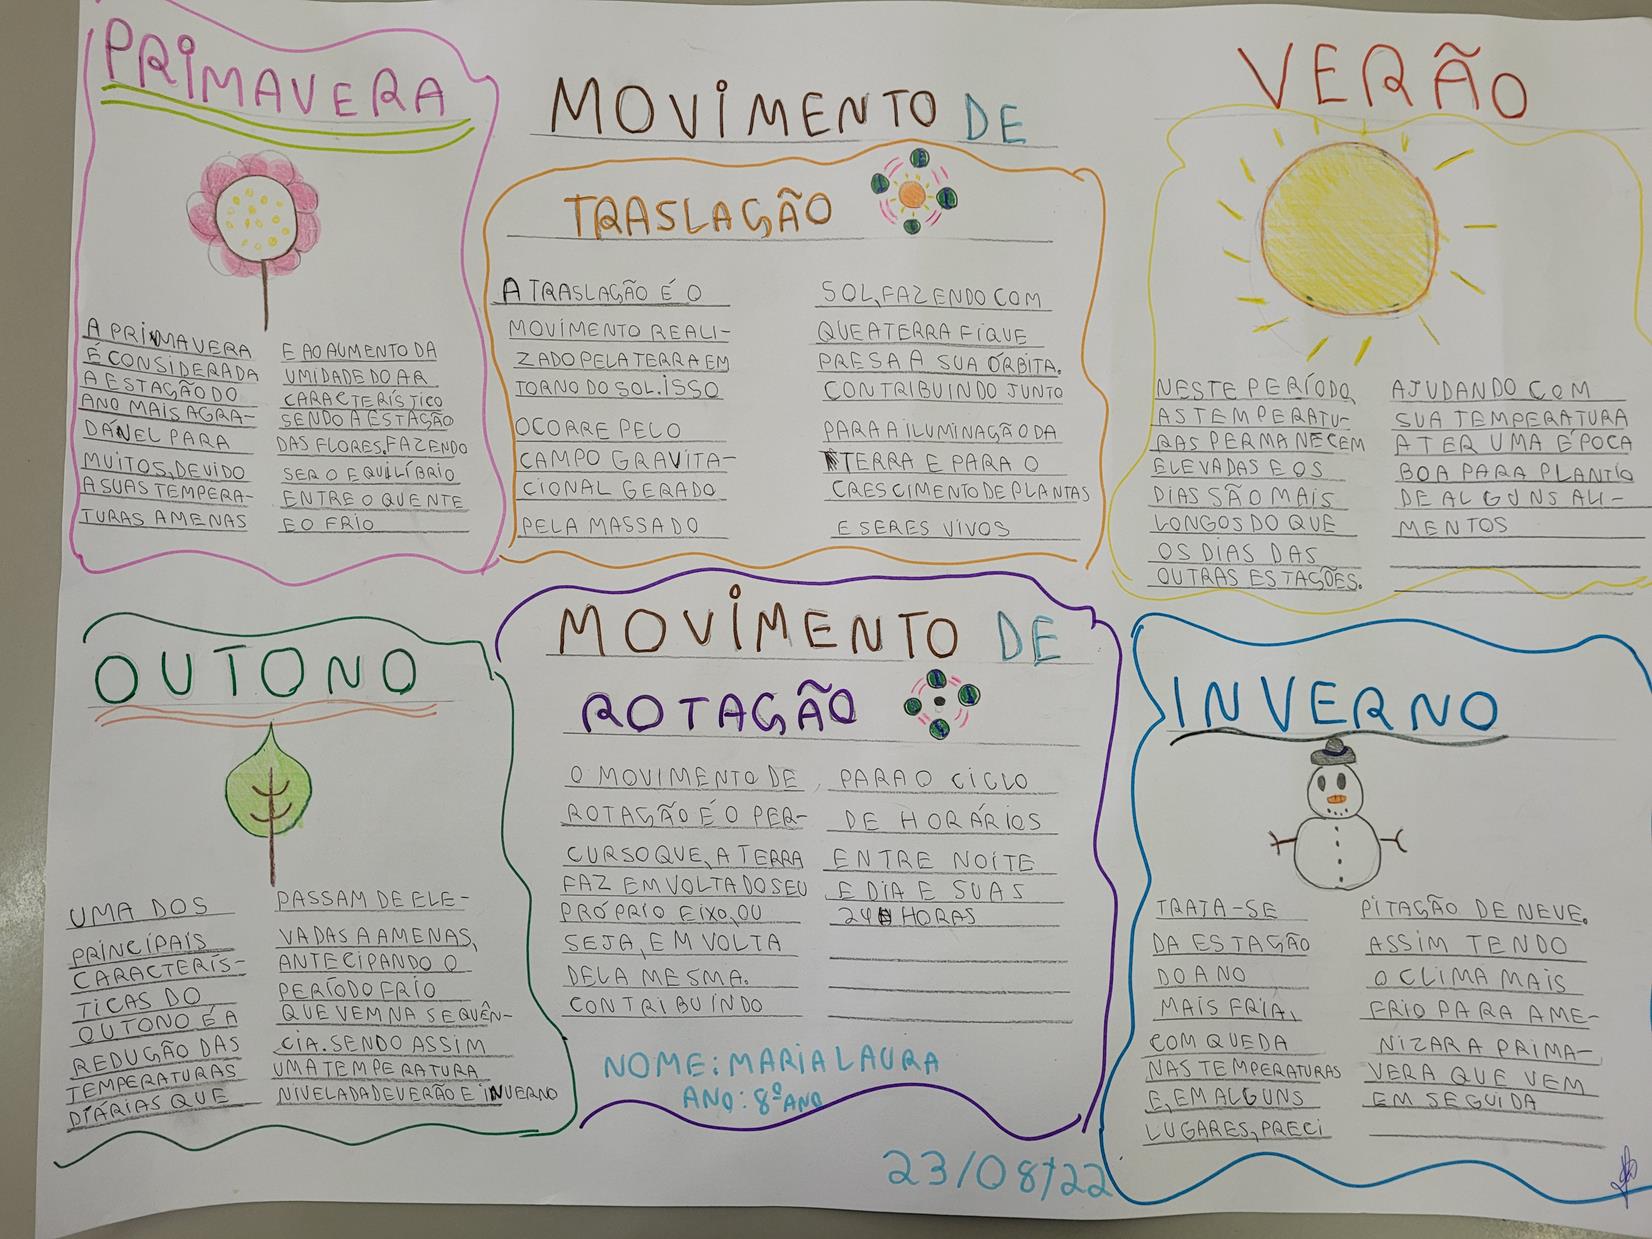 PRIMAVERA
A PRIMAVERA
É CONSIDERADA
A ESTAÇÃO DO
ANO MAIS AGRA-
DÁNEL PARA
MUITOS, DEVIDO
A SUAS TEMPERA-
TURAS AMENAS
E AO AUMENTO DA
UMIDADE DO AR
CARACTERÍSTICO
SENDO A ESTAÇÃO
DAS FLORES, FAZENDO
SER O EQUILÍBRIO
ENTRE O QUENTE
E O FRIO
MOVIMENTO DE
TRASLAÇÃO
A TRASLAÇÃO É O
MOVIMENTO REALI-
ZADO PELA TERRA EM
TORNO DO SOL. ISSO
OCORRE PELO
CAMPO GRAVITA-
CIONAL GERADO
PELA MASSA DO
SOL, FAZENDO COM
QUE A TERRA FIQUE
PRESA A SUA ÓRBITA.
CONTRIBUINDO JUNTO
PARA A ILUMINAÇÃO DA
TERRA E PARA O
CRESCIMENTO DE PLANTAS
E SERES VIVOS
VERÃO
NESTE PERÍODO,
AS TEMPERATU-
RAS PERMANECEM
ELEVADAS E OS
DIAS SÃO MAIS
LONGOS DO QUE
OS DIAS DAS
OUTRAS ESTAÇÕES.
AJUDANDO COM
SUA TEMPERATURA
A TER UMA ÉPOCA
BOA PARA PLANTIO
DE ALGUNS ALI-
MENTOS
OUTONO
UMA DOS
PRINCIPAIS
CARACTERÍS-
TICAS DO
OUTONO É A
REDUÇÃO DAS
TEMPERATURAS
DIÁRIAS QUE
PASSAM DE ELE-
VADAS A AMENAS,
ANTECIPANDO O
PERÍODO FRIO
QUE VEM NA SEQUÊN-
CIA. SENDO ASSIM
UMA TEMPERATURA
NIVELADA DE VERÃO E INVERNO
MOVIMENTO DE
ROTAÇÃO
O MOVIMENTO DE
ROTAÇÃO É O PER-
CURSO QUE, A TERRA
FAZ EM VOLTA DO SEU
PRÓPRIO EIXO, OU
SEJA, EM VOLTA
DELA MESMA.
CONTRIBUINDO
PARA O CICLO
DE HORÁRIOS
ENTRE NOITE
E DIA E SUAS
24 HORAS
NOME: MARIA LAURA
ANO: 8º ANO
23/08/22
INVERNO
TRATA-SE
DA ESTAÇÃO
DO ANO
MAIS FRIA,
COM QUEDA
NAS TEMPERATURAS
E, EM ALGUNS
LUGARES, PRECI
PITAÇÃO DE NEVE.
ASSIM TENDO
O CLIMA MAIS
FRIO PARA AME-
NIZAR A PRIMA-
VERA QUE VEM
EM SEGUIDA